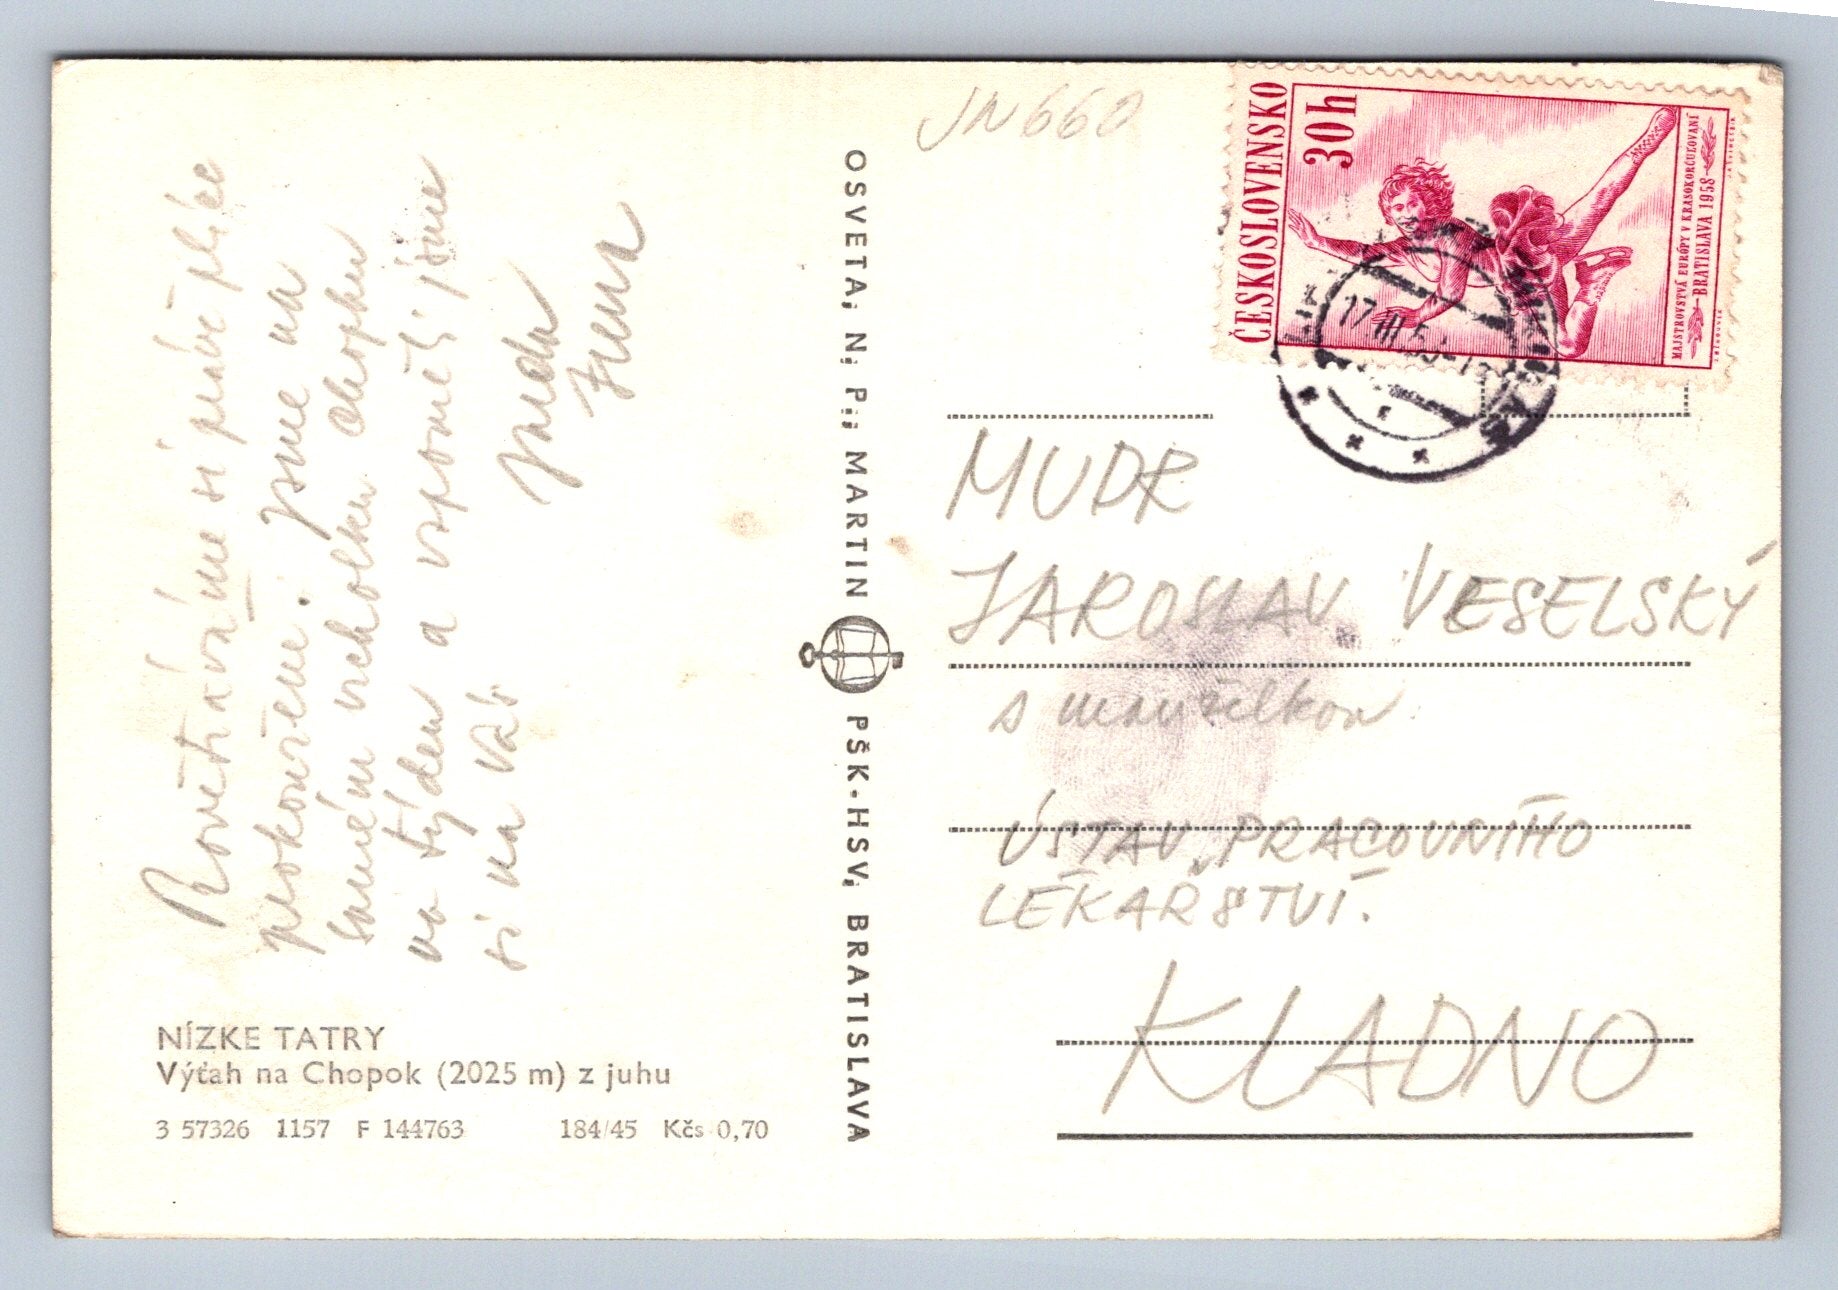 Rozvětráváme si právě plíce
prokouřené. Jsme na
samém vrcholku Chopku
na týden a vzpoměli jsme
si na Vás
Irena
NÍZKE TATRY
Výťah na Chopok (2025 m) z juhu
3 57326 1157 F 144763 184/45 Kčs 0,70
OSVETA, N. P., MARTIN
PŠK-HSV, BRATISLAVA
JN660
ČESKOSLOVENSKO
30h
MAJSTROVSTVÁ EURÓPY V KRASOKORČUĽOVANÍ
BRATISLAVA 1958
17.III.58
MUDR
JAROSLAV VESELSKÝ
s manželkou
ÚSTAV PRACOVNÍHO
LÉKAŘSTVÍ.
KLADNO